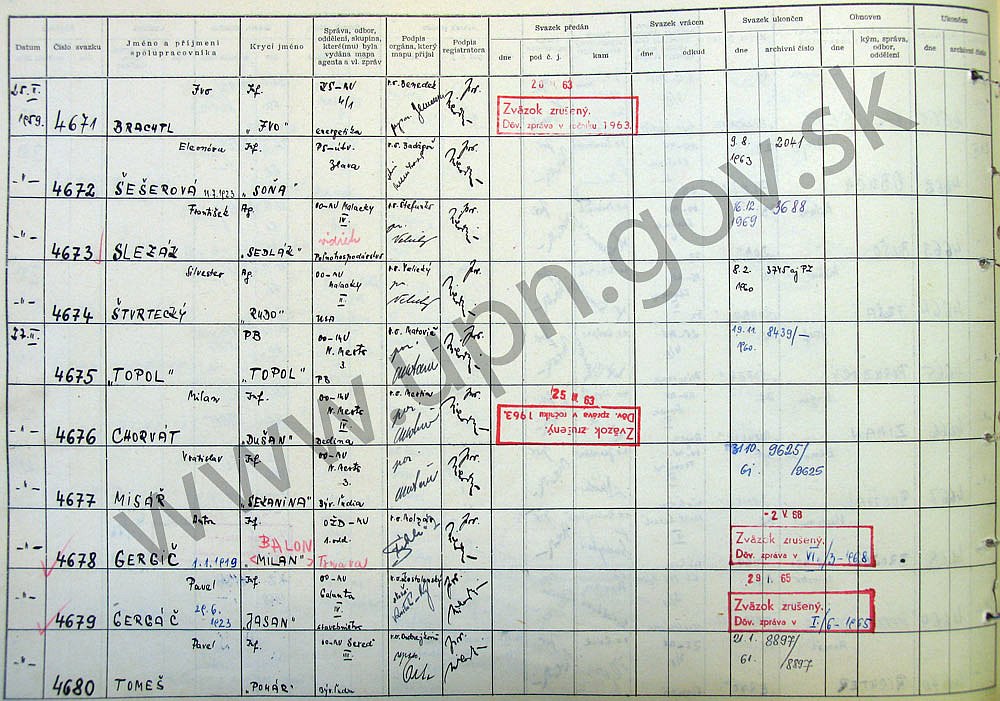 Datum
Číslo svazku
Jméno a příjmení
spolupracovníka
Krycí jméno
Správa, odbor,
oddělení, skupina,
které(mu) byla
vydána mapa
agenta a vl. zpráv
Podpis
orgána, který
mapu přijal
Podpis
registratora
Svazek předán
dne
pod č. j.
kam
Svazek vrácen
dne
odkud
Svazek ukončen
dne
archivní číslo
Obnoven
dne
kým, správa,
odbor,
oddělení
Ukončen
dne
archivní číslo
25. II.
1959.
4671
Ivo
BRACHTL
Inf.
„IVO"
4/1
energetika
r.o. Benedek
63
Zväzok zrušený.
Dôv. zpráva v ročníku 1963.
4672
Eleonóra
ŠEŠEROVÁ 11.7.1923
Inf.
„SOŇA"
Ilava
9. 8.
1963
2041
4673
František
SLEZÁK
Ag.
„SEDLÁK"
OO-MV Malacky
IV.
Poľnohospodárstvo
r.o. Štefanko
16. 12.
1969
3688
4674
Silvester
ŠTVRTECKÝ
Ag.
„RUDO"
OO-MV
Malacky
II.
USA
r.o. Velický
8. 2.
1960
3745 aj PZ
27. II.
4675
„TOPOL"
PB
„TOPOL"
OO-MV
N. Mesto
3.
PB
r.o. Matovič
19. 11.
1960.
8439/—
4676
Milan
CHORVÁT
Inf.
„DUŠAN"
OO-MV
N. Mesto
IV.
Dedina
25 II. 63
Zväzok zrušený.
Dôv. zpráva v ročníku 1963.
4677
Vratislav
MISAŘ
Inf.
„SEKANINA"
OO-MV
N. Mesto
3.
Býv. ľudia
31. 10.
61.
9625/
/9625
4678
Anton
GERGIČ 1.1.1919
Inf.
BALON
„MILAN"
OŽD-MV
1. odd.
Trnava
- 2 V. 68
Zväzok zrušený.
Dôv. zpráva v VI./3-1968
4679
Pavel
GERGÁČ
29.6.
1923
Inf.
„JASAN"
OO-MV
Galanta
IV.
Stavebníctvo
29 I. 65
Zväzok zrušený.
Dôv. zpráva v I./6-1965
4680
Pavel
TOMEŠ
Inf.
„POHÁR"
OO-MV Sereď
III.
Býv. ľudia
21. 1.
61.
8897/
/8897
www.upn.gov.sk